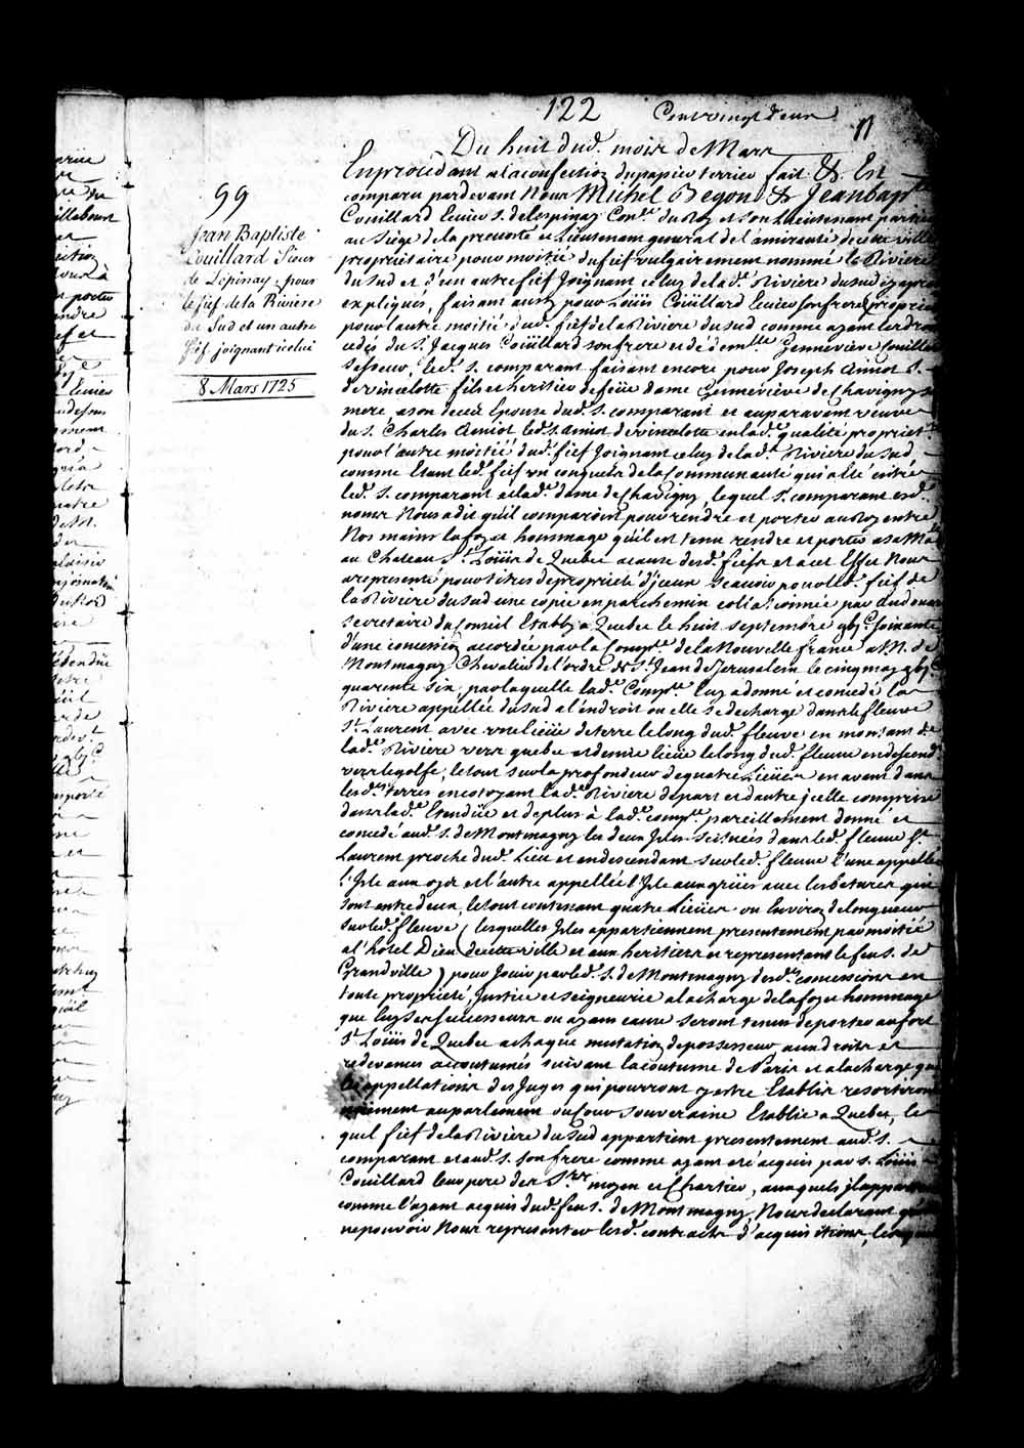 122 Cent vingt deux
11
Du huit dud. mois de Mars
99
Jean Baptiste
Couillard Sieur
de Lépinay, pour
le fief de la Riviere
du Sud et un autre
fief joignant icelui
8 Mars 1725
En procedant a la confection du papier terrier fait &. Est
comparu pardevant Nous Michel Begon &. Jean bap.te
Couillard Ecuier s. de Lespinay Con.er du Roy et son Lieutenant particulier
au Siege de la prevosté et Lieutenant general de l'amirauté de cette ville
propriétaire pour moitié du fief vulgairement nommé la Riviere
du Sud et d'un autre fief Joignant celuy de lad.e Riviere du sud cy apres
expliqués, faisant aussy pour Loüis Coüillard Ecuier son frere proprietaire
pour l'autre moitié dud. fief de la Riviere du Sud comme ayant les droits
cedés du S. Jacques Coüillard son frere et de dem.lle Genneviéve Couillard
sa soeur, led. s. comparant faisant encore pour Joseph Amiot S.
de vincelotte fils et heritier de feüe dame Gennevieve de Chavigny sa
mere a son decés Epouse dud. s. comparant et auparavant veuve
du S. Charles Amiot led. s. Amiot de vincelotte en lad.e qualité propriet.re
pour l'autre moitié dud. fief Joignant celuy de lad.e Riviere du Sud
comme Etant led. fief un conquest de la Communauté qui a Eté entre
led. s. comparant et lad.e dame de Chavigny, lequel s. comparant esd.
noms Nous a dit qu'il comparoist pour rendre et porter au Roy entre
Nos mains la foy et hommage qu'il est tenu rendre et porter a sa Ma.té
au Chateau S.t Loüis de Quebec a cause desd. fiefs et a cet Effet Nous
a representé pour titres de proprieté d'iceux Scavoir pour led. fief de
la Riviere du Sud une copie en parchemin collationnée par Audouart
secretaire du Conseil Etably a Quebec le huit septembre gbj.c soixante
d'une concession accordée par la Comp.ie de la Nouvelle france a M. de
Montmagny Chevalier de l'ordre de S.t Jean de Jerusalem le cinq may gbj.c
quarente six, par laquelle lad.e Comp.ie luy a donné et concedé la
Riviere appellée du Sud a l'endroit ou elle se decharge dans le fleuve
S.t Laurent avec une lieüe de terre le long dud. fleuve en montant de
lad.e Riviere vers quebec et demie lieüe le long dud. fleuve en descend.t
vers le golfe, le tout sur la profondeur de quatre Lieües en avant dans
lesd. terres en cotoyant lad.e Riviere de part et d'autre jcelle comprise
dans lad.e Etendüe et de plus a lad.e comp.ie pareillement donné et
concedé aud. s. de Montmagny les deux Isles scituées dans led. fleuve S.t
Laurent proche dud. Lieu et en descendant sur led. fleuve l'une appellée
l'Isle aux oyes et l'autre appellée l'Isle aux grües avec les batures qui
sont entre deux, le tout contenant quatre Lieües ou Environ de longueur
sur led. fleuve (lesquelles Isles appartiennent presentement par moitié
a l'hotel Dieu de cette ville et aux heritiers et representant le feu s. de
Grandville) pour Jouir par led. s. de Montmagny desd. concessions en
toute proprieté, Justice et seigneurie a la charge de la foy et hommage
que luy ses successeurs ou ayans cause seront tenus de porter au fort
S.t Loüis de Quebec a chaque mutation de possesseur aux droits et
redevances accoutumés suivant la coutume de Paris et a la charge que
les appellations des Juges qui pourront y estre Etablis resortiront
nüement au parlement ou Cour Souveraine Etablie a Quebec, le
quel fief de la Riviere du Sud appartient presentement aud. s.
comparant et aud. s. son frere comme ayant eté acquis par s. Loüis
Couillard leur pere des S.rs moyen et Chartier, auxquels il appartenoit
comme l'ayant acquis dud. feu s. de Montmagny, Nous declarant
ne pouvoir Nous representer lesd. contracts d'acquisitions,